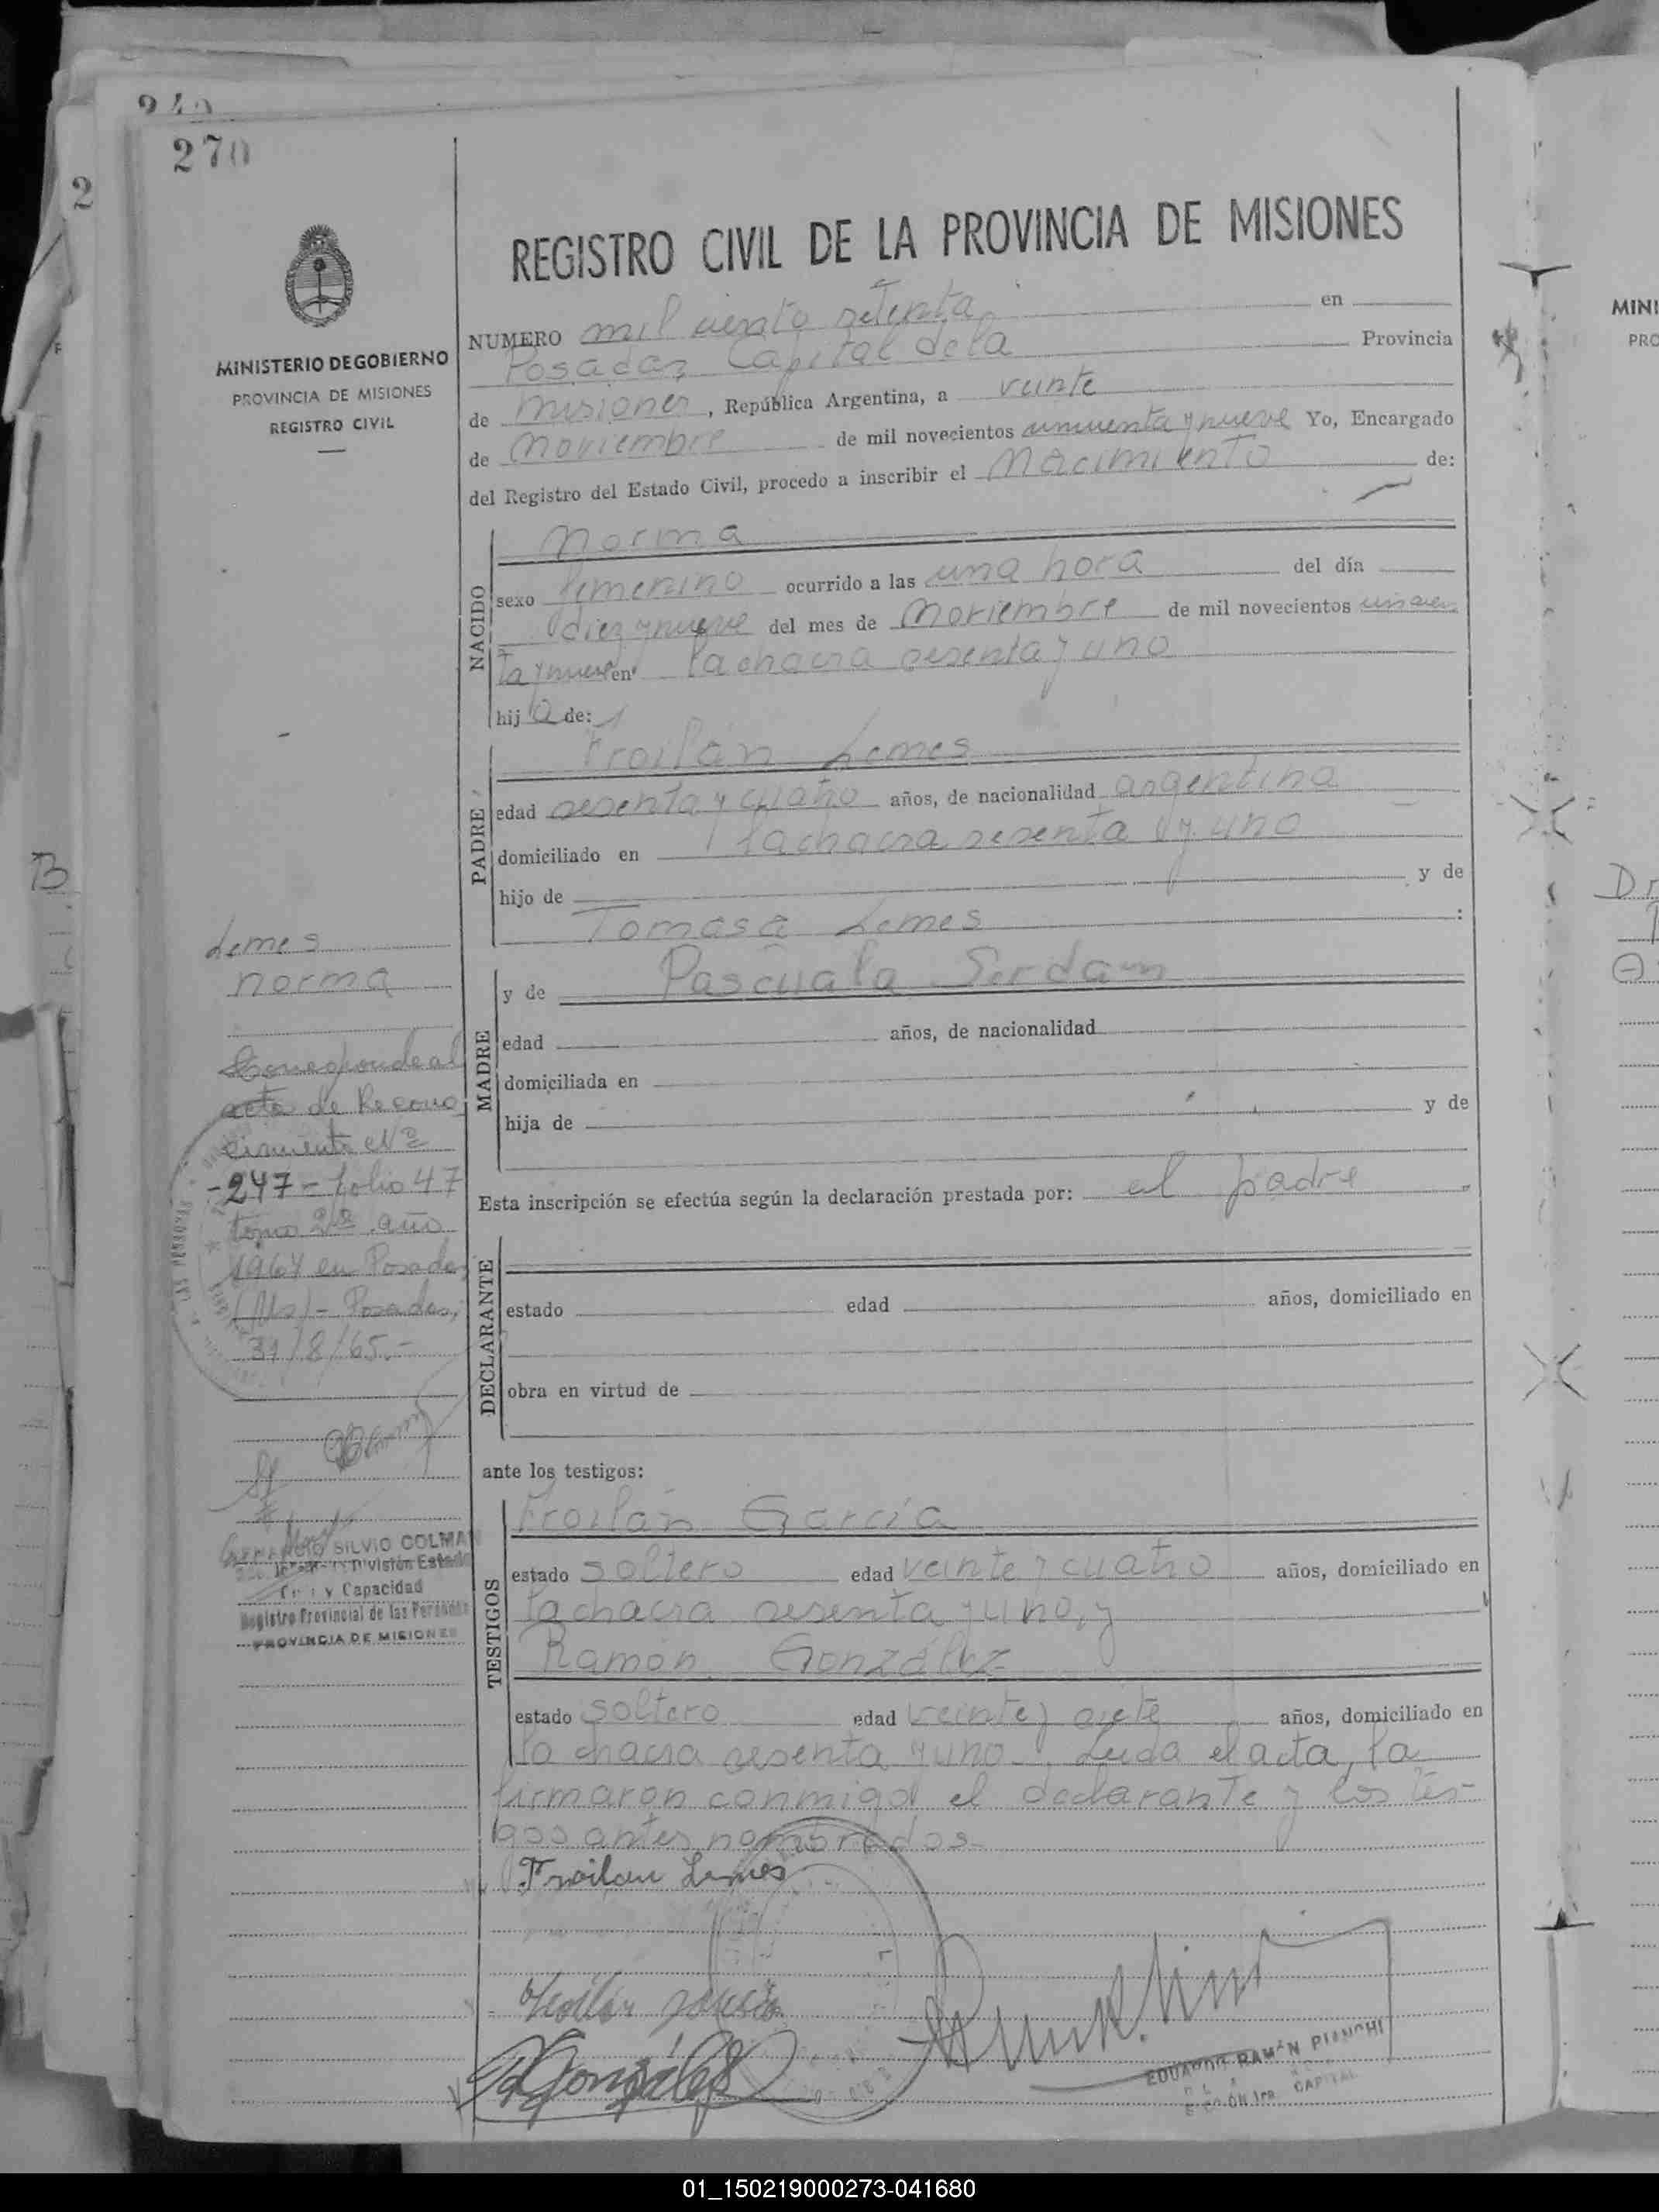 240
270
2
MINISTERIO DE GOBIERNO
PROVINCIA DE MISIONES
REGISTRO CIVIL
REGISTRO CIVIL DE LA PROVINCIA DE MISIONES
NUMERO mil ciento setenta en
Posadas Capital de la Provincia
de misiones, República Argentina, a veinte
de noviembre de mil novecientos cincuenta y nueve Yo, Encargado
del Registro del Estado Civil, procedo a inscribir el nacimiento de:
NACIDO
norma
sexo femenino ocurrido a las una hora del día
diez y nueve del mes de noviembre de mil novecientos cincuen
ta y nueve en la chacra sesenta y uno
hija de:
PADRE
Froilán Lemes
edad sesenta y cuatro años, de nacionalidad argentina
domiciliado en la chacra sesenta y uno
hijo de y de
Tomasa Lemes :
MADRE
y de Pascuala
edad años, de nacionalidad
domiciliada en
hija de y de
Esta inscripción se efectúa según la declaración prestada por: el padre
DECLARANTE
estado edad años, domiciliado en
obra en virtud de
ante los testigos:
TESTIGOS
Froilán García
estado soltero edad veinte y cuatro años, domiciliado en
la chacra sesenta y uno, y
Ramón González
estado soltero edad veinte y siete años, domiciliado en
la chacra sesenta y uno. Leída el acta, la
firmaron conmigo el declarante y los tes-
igos antes nombrados-
Froilan Lemes
Froilán García
R Gonzáles
EDUARDO RAMÓN PIANCHI
CAPITAL
Lemes
norma
Corresponde al
acta de Recono
cimiento Nº
-247- folio 47
tomo 2º año
1964 en Posadas
(Ms) - Posadas,
31/8/65.-
SILVIO COLMAN
División Estado
Civil y Capacidad
Registro Provincial de las Personas
PROVINCIA DE MISIONES
MINI
PRO
01_150219000273-041680